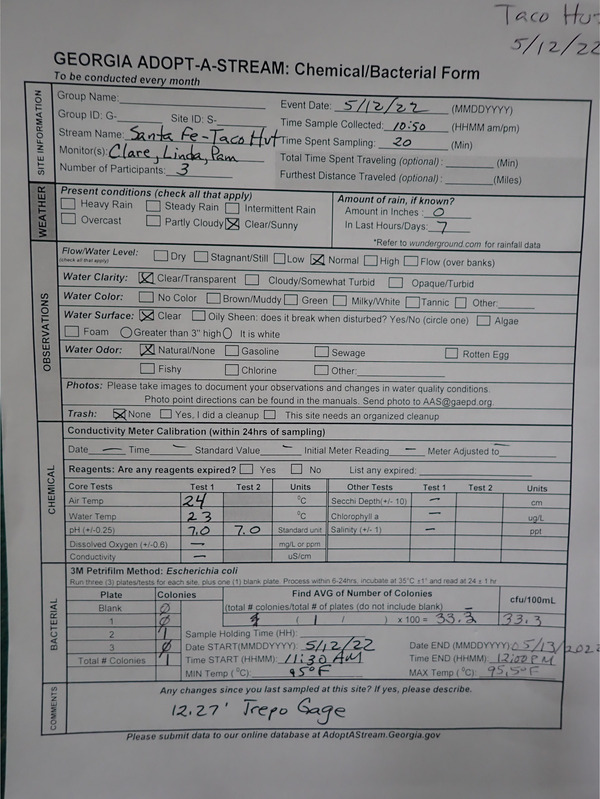 Taco Hut
5/12/22
GEORGIA ADOPT-A-STREAM: Chemical/Bacterial Form
To be conducted every month
SITE INFORMATION
Group Name:
Group ID: G- Site ID: S-
Stream Name: Santa Fe-Taco Hut
Monitor(s): Clare, Linda, Pam
Number of Participants: 3
Event Date: 5/12/22 (MMDDYYYY)
Time Sample Collected: 10:50 (HHMM am/pm)
Time Spent Sampling: 20 (Min)
Total Time Spent Traveling (optional): (Min)
Furthest Distance Traveled (optional): (Miles)
WEATHER
Present conditions (check all that apply)
Heavy Rain Steady Rain Intermittent Rain
Overcast Partly Cloudy Clear/Sunny
Amount of rain, if known?
Amount in Inches: 0
In Last Hours/Days: 7
*Refer to wunderground.com for rainfall data
OBSERVATIONS
Flow/Water Level: Dry Stagnant/Still Low Normal High Flow (over banks)
(check all that apply)
Water Clarity: Clear/Transparent Cloudy/Somewhat Turbid Opaque/Turbid
Water Color: No Color Brown/Muddy Green Milky/White Tannic Other:
Water Surface: Clear Oily Sheen: does it break when disturbed? Yes/No (circle one) Algae
Foam Greater than 3" high It is white
Water Odor: Natural/None Gasoline Sewage Rotten Egg
Fishy Chlorine Other:
Photos: Please take images to document your observations and changes in water quality conditions.
Photo point directions can be found in the manuals. Send photo to AAS@gaepd.org.
Trash: None Yes, I did a cleanup This site needs an organized cleanup
CHEMICAL
Conductivity Meter Calibration (within 24hrs of sampling)
Date — Time — Standard Value — Initial Meter Reading — Meter Adjusted to —
Reagents: Are any reagents expired? Yes No List any expired:
Core Tests Test 1 Test 2 Units Other Tests Test 1 Test 2 Units
Air Temp 24 °C Secchi Depth(+/- 10) — cm
Water Temp 23 °C Chlorophyll a — ug/L
pH (+/-0.25) 7.0 7.0 Standard unit Salinity (+/- 1) — ppt
Dissolved Oxygen (+/-0.6) — mg/L or ppm
Conductivity — uS/cm
BACTERIAL
3M Petrifilm Method: Escherichia coli
Run three (3) plates/tests for each site, plus one (1) blank plate. Process within 6-24hrs, incubate at 35°C ±1° and read at 24 ± 1 hr
Plate Colonies Find AVG of Number of Colonies cfu/100mL
Blank 0 (total # colonies/total # of plates (do not include blank)
1 0 ( 1 / ) x 100 = 33.3 33.3
2 1 Sample Holding Time (HH):
3 0 Date START(MMDDYYYY): 5/12/22 Date END (MMDDYYYY): 05/13/2022
Total # Colonies 1 Time START (HHMM): 11:30 AM Time END (HHMM): 12:00 PM
MIN Temp (°C): 95°F MAX Temp (°C): 95.5°F
COMMENTS
Any changes since you last sampled at this site? If yes, please describe.
12.27' Trepo Gage
Please submit data to our online database at AdoptAStream.Georgia.gov